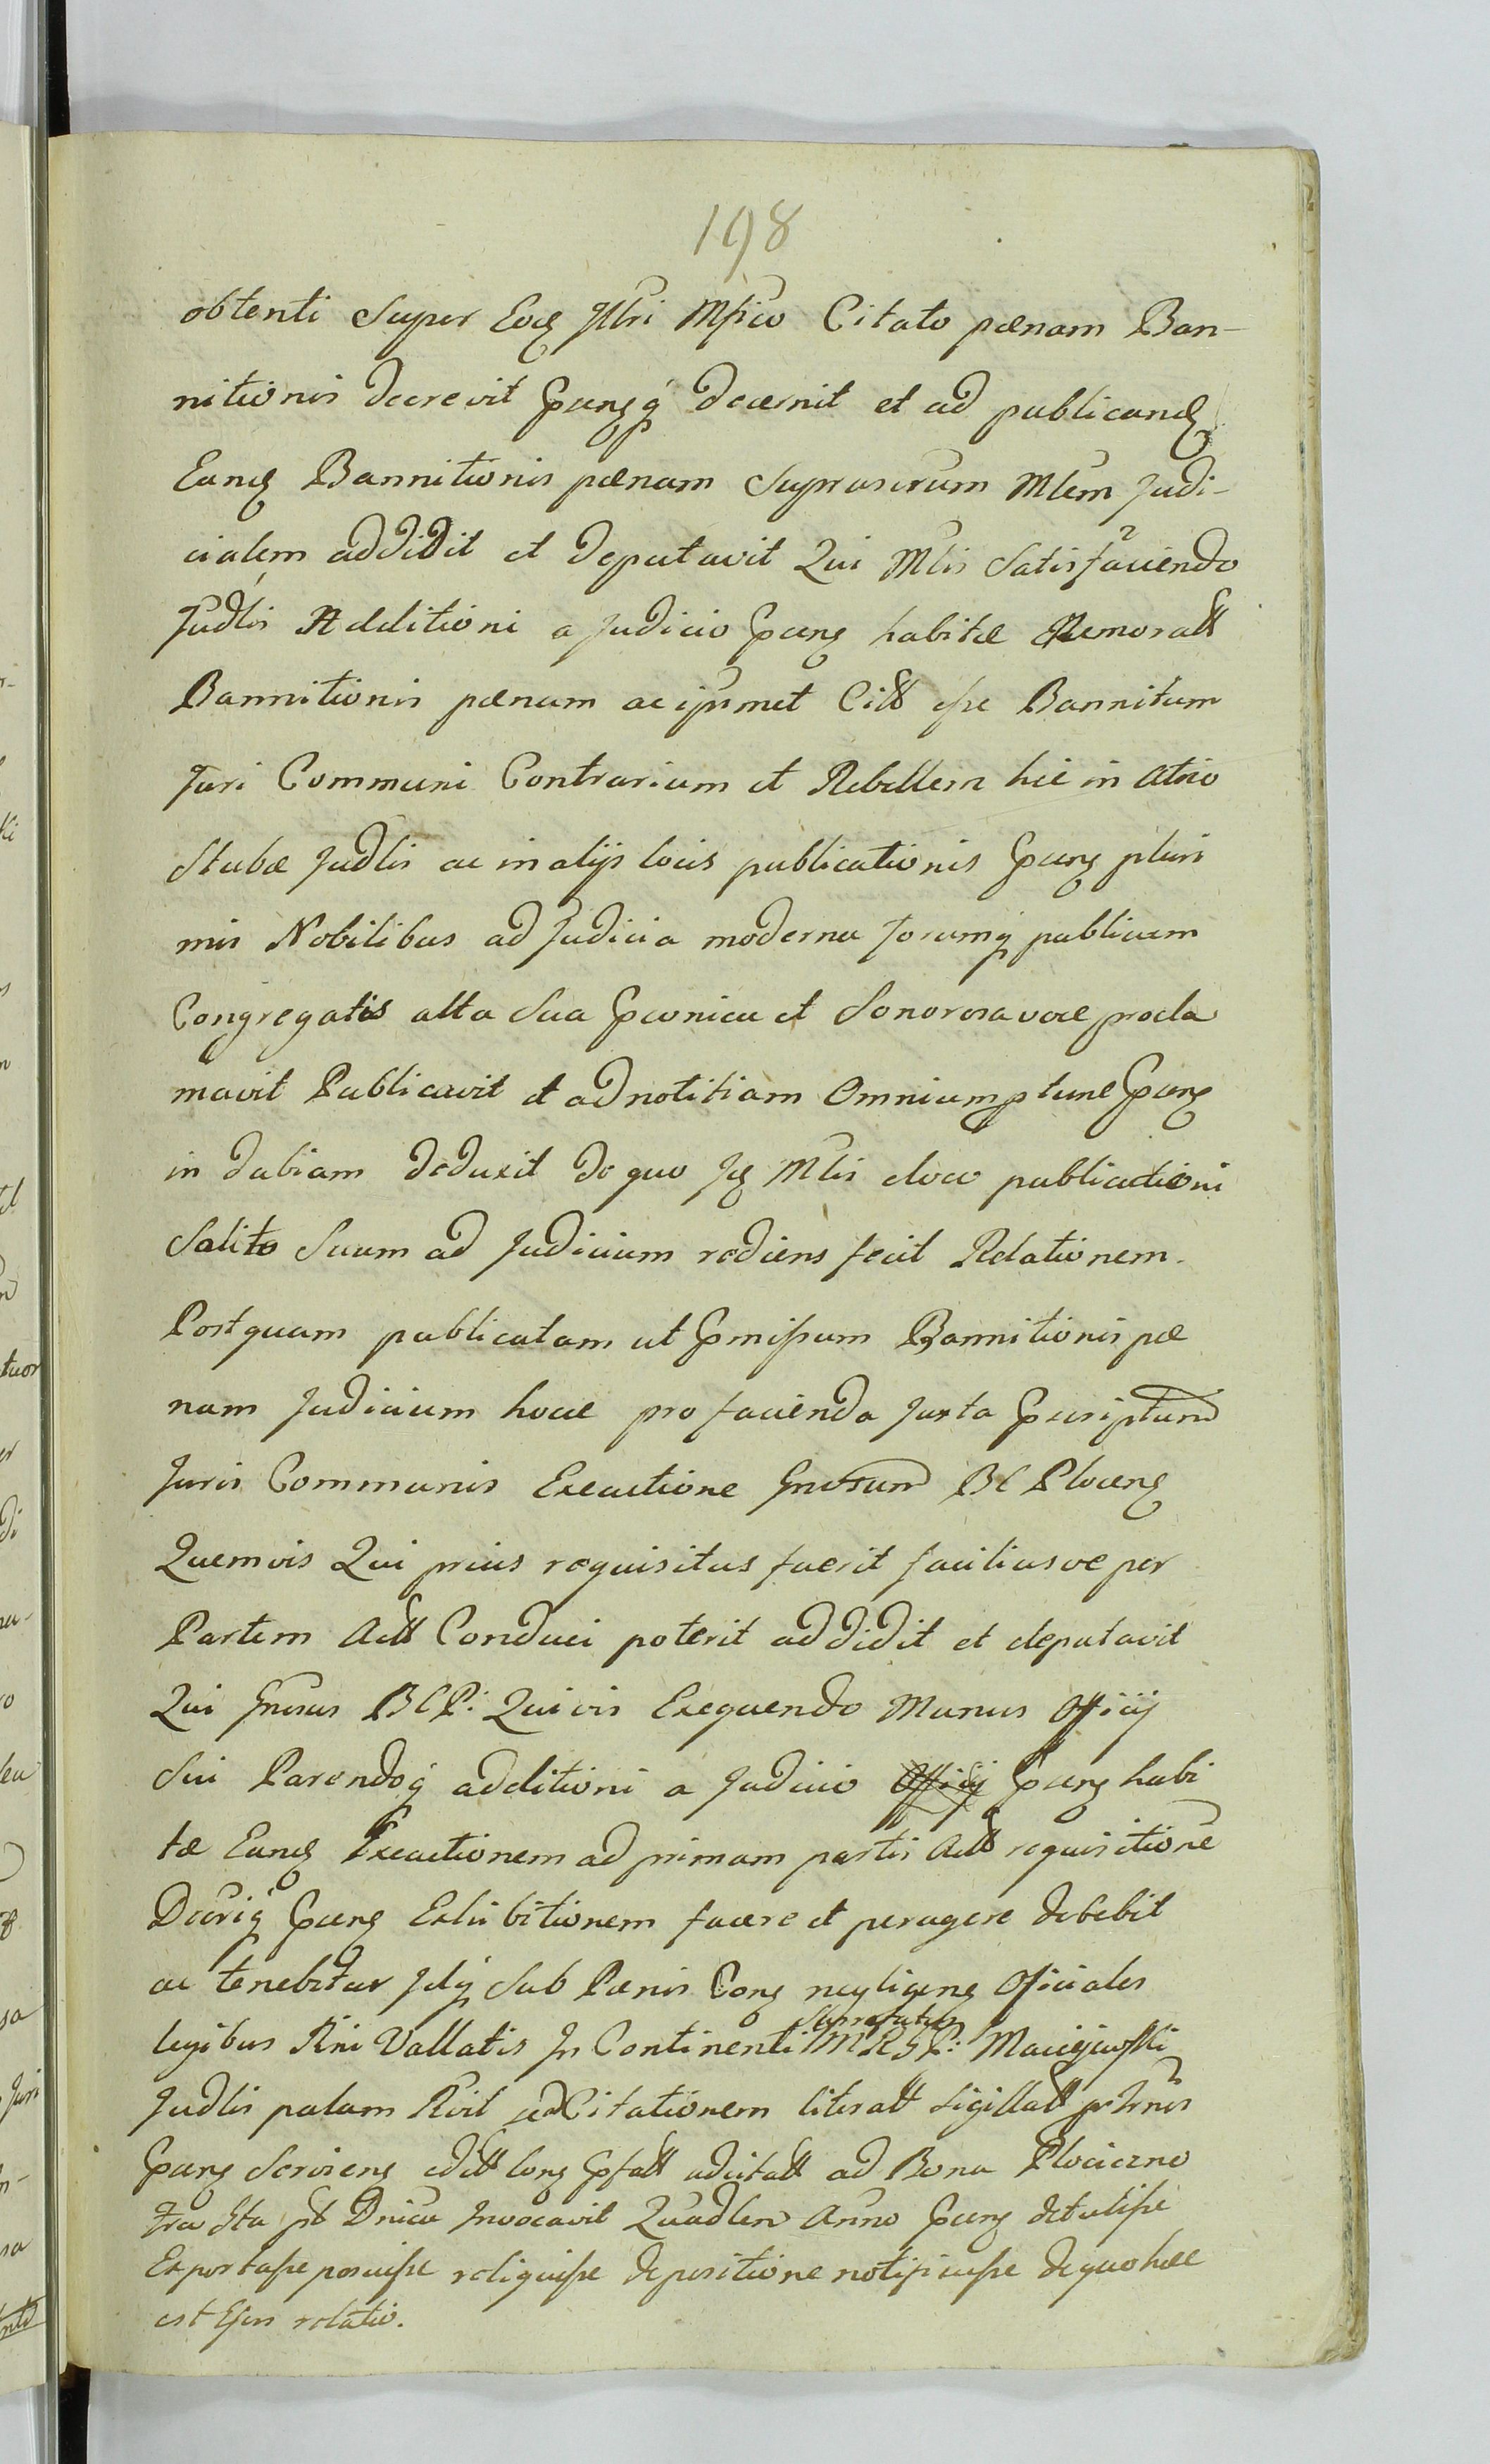 198
obtenti Super Eoq Illri Mfico Citato pœnam Ban-
nitionis decrevit Prnsq decernit et ad publicandq
Eandq Bannitionis pœnam Suprascrum Mlem Judi-
cialem addidit et deputavit Qui Mlis Satisfaciendo
Judlis Additioni a Judicio Prns habitæ Memoratt
Bannitionis pœnam ac ipsmet Citt esse Bannitum
Juri Communi Contrarium et Rebellem hic in atrio
Stubæ Judlis ac in alijs locis publicationis Prns pluri
mis Nobilibus ad Judicia moderna forumq publicum
Congregatis alta Sua Præonica et Sonorosa voce procla
mavit Publicavit et ad notitiam Omnium tunc Prns
in dubiam deduxit de quo Iq Mlis eloco publicationi
Solito Suum ad Judicium rediens fecit Relationem.
Postquam publicatam ut Prmissum Bannitionis pœ
nam Judicium hocce pro facienda Juxta Prscriptum
Juris Communis Executione Gnosum BC Plocens
Quemvis Qui prius requisitus fuerit faciliusve per
Partem Actt Conduci poterit addidit et deputavit
Qui Gnosus BCP: Quivis Exequendo Munus Officij
Sui Parendoq additioni a Judicio Officij Prns habi
tæ Eandq Executionem ad primam partis Actt requisitione
Decriq Prns Exhibitionem facere et peragere debebit
ac tenebitur Idq Sub Pœnis Cons negligens Oficiales
legibus Rni Vallatis In Continenti Suprafatus MRGP: Maciejewski
Judlis palam Rvit se Citationem literatt sigillatt
Prns Serviens ad Bona Plociczno
Anno Prns detulisse
Exportasse posuisse reliquisse depositione notificasse de quo hæc
est Ejus relatio.